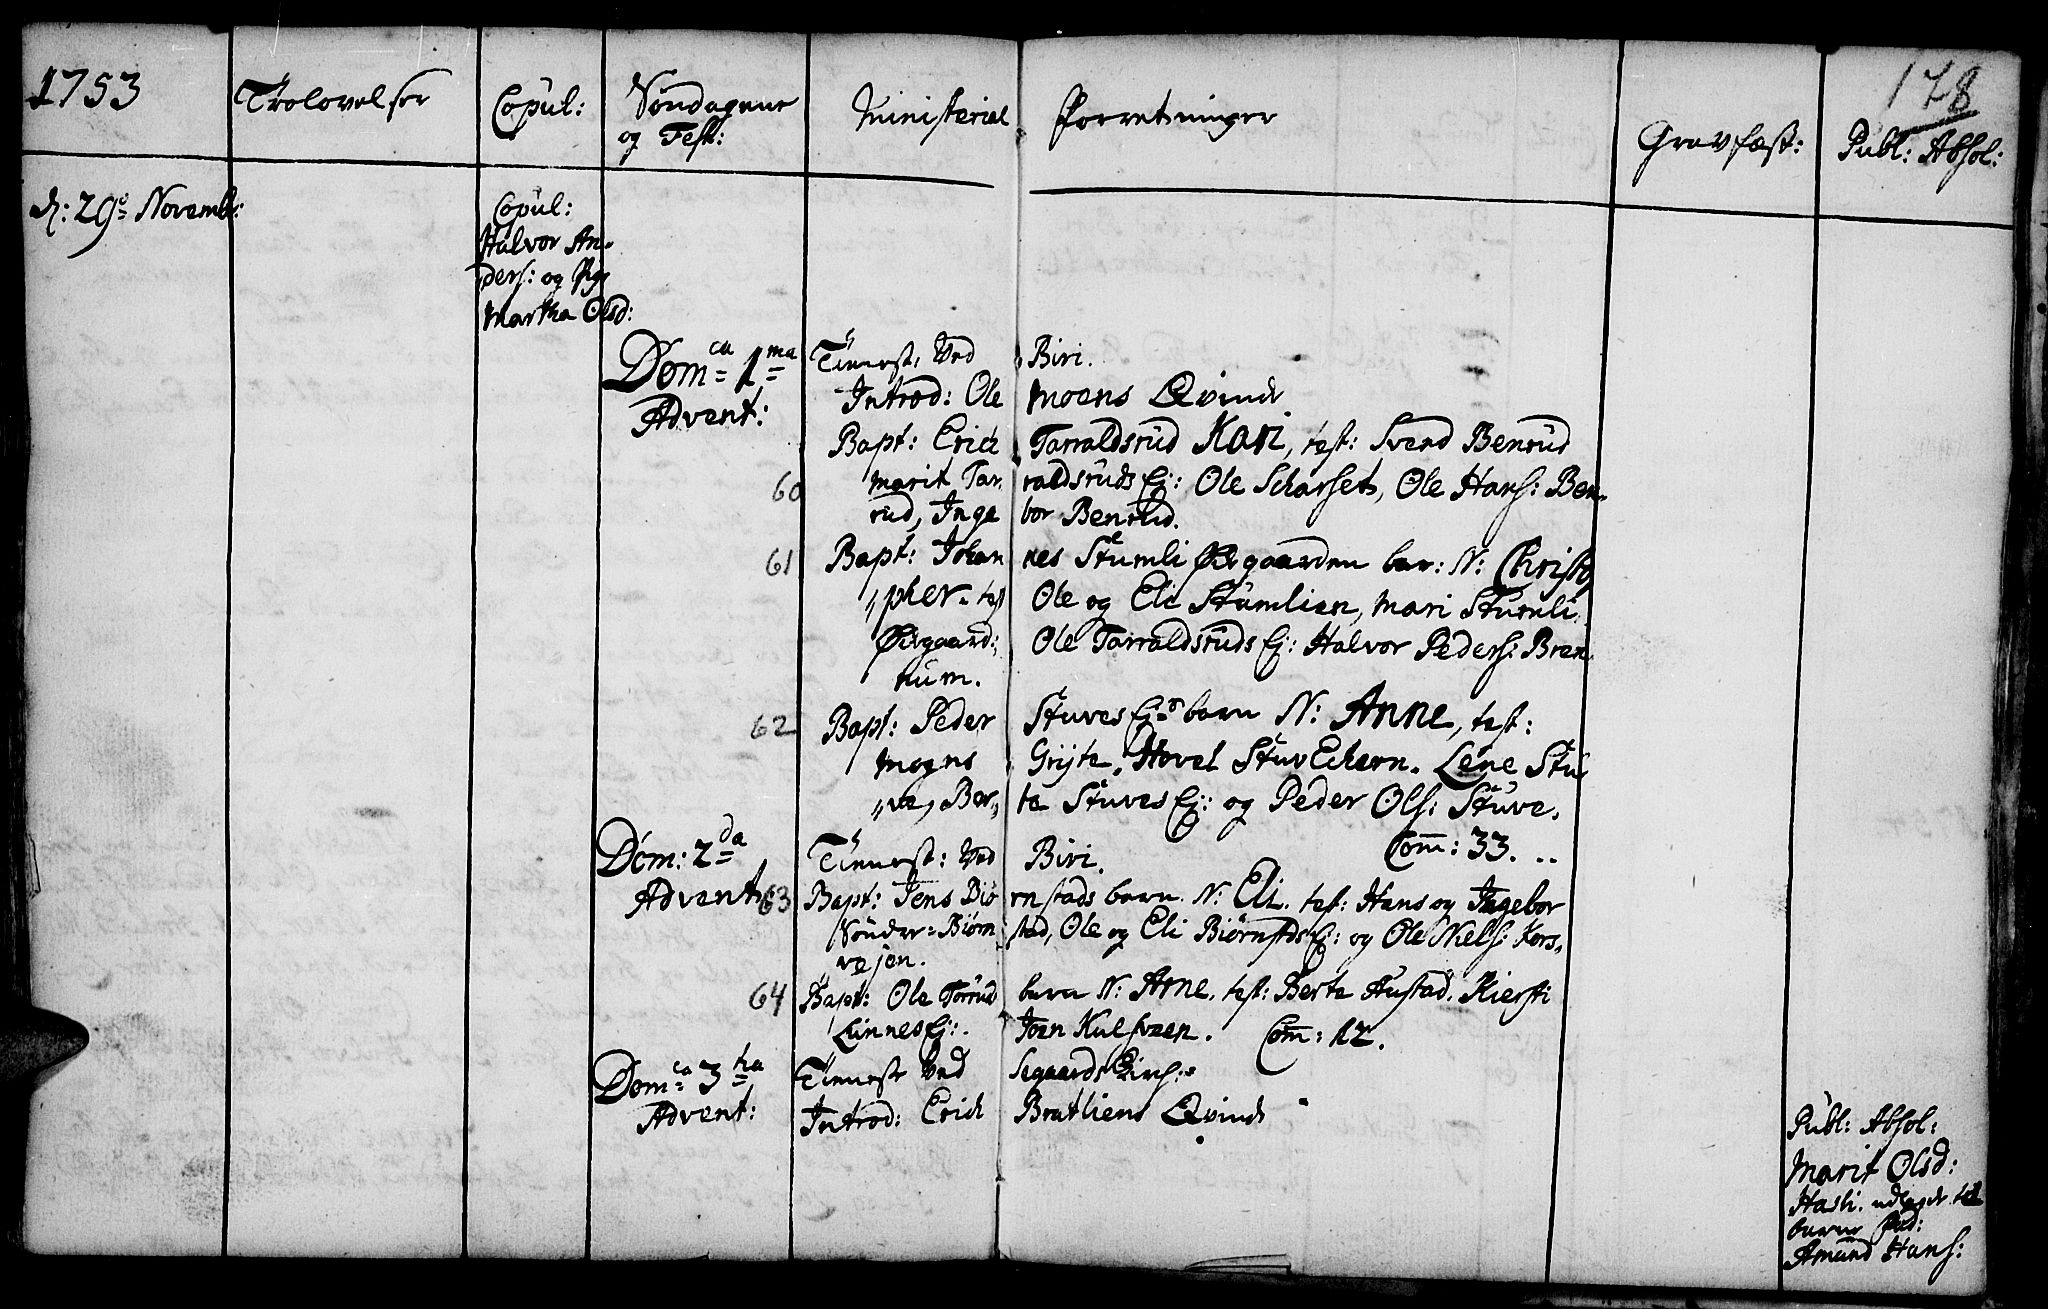 1753
Trolovelser
Copul:
Søndagene
og Fest:
Ministerial Forretninger
Gravfæst:
178
Publ: Absol:
d: 29: Novembr:
Copul:
Halvor An-
ders: og Pig
Martha Olsd:
Dom ca 1 ma
Advent:
Tienest: Ved Biri.
Introd: Ole Moens Qvinde
Bapt: Erich Tarraldsrud Kari, test: Svend Benrud
60 Marit Tar raldsruds Ej: Ole Scharset, Ole Hans: Ben-
rud, Inge bor Benrud.
61 Bapt: Johan nes Stumli Øgaarden bar: N: Christo
"pher. test Ole og Eli Stumlien, Mari Stumli
Øgaard: Ole Tarraldsruds Ej: Halvor Peders: Bren
num.
62 Bapt: Peder Stuves Ej: barn N: Anne, test:
Moens Gryte, Hovel StuvEchern. Lene Stu
"ve, Ber" te Stuves Ej: og Peder Ols: Stuve.
Com: 33.
Dom: 2 da
Advent:
Tienest: Ved Biri.
63 Bapt: Jens Biø rnstads barn N: Eli. test: Hans og Ingebor
Sønder=Biørn stad, Ole og Eli Biørnstds Ej: og Ole Niels: Kors-
vejen.
64 Bapt: Ole Torrud barn N: Arne. test: Berte Hustad. Kiersti
Lunnes Ej:. Joen Kulsveen. Com: 12.
Dom ca 3 tia
Advent:
Tieneste Ved Segaards Kirch:
Introd: Erich Bratliens Qvinde
Publ: Absol:
Marit Olsd:
Hasli. udlagde til
barne Fad:
Amund Hans: